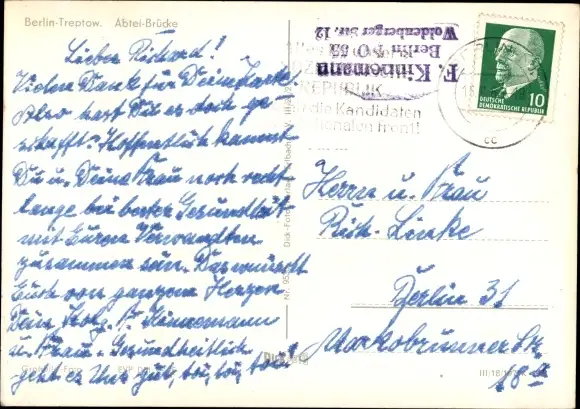 Berlin-Treptow. Abtei-Brücke
Lieber Richard!
Vielen Dank für Deine Karte
Also hast Du es doch ge
schafft. Hoffentlich kannst
Du u. Deine Frau noch recht
lange bei bester Gesundheit
mit Euren Verwandten
zusammen sein. Das wünscht
Euch von ganzem Herzen
Dein F. Kinnemann
u. Frau. Gesundheitlich
geht es Uns gut, toi, toi, toi!
F. Kinnemann
Berlin NO 55
Woldenberger Str. 12
REPUBLIK
die Kandidaten
Nationalen Front!
DEUTSCHE
DEMOKRATISCHE REPUBLIK
10
cc
Herrn u. Frau
Rich. Linke
Berlin 31
Markobrunner Str.
18a
EVP
III/18/197